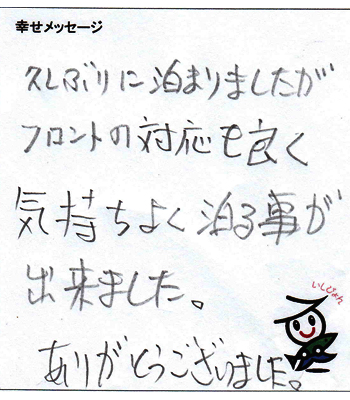 幸せメッセージ
久しぶりに泊まりましたが
フロントの対応も良く
気持ちよく泊る事が
出来ました。
いしぴょん
ありがとうございました。